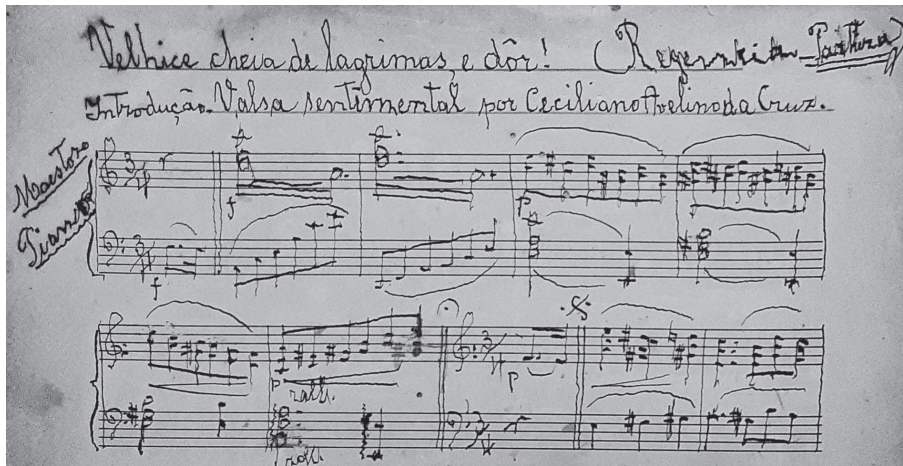 Velhice cheia de lagrimas, e dôr! (
Introdução. Valsa sentimental por Ceciliano Avelino da Cruz.
Maestozo
Piano
3/4
f
p
3/4
f
3/4
p
rall.
p
rall.